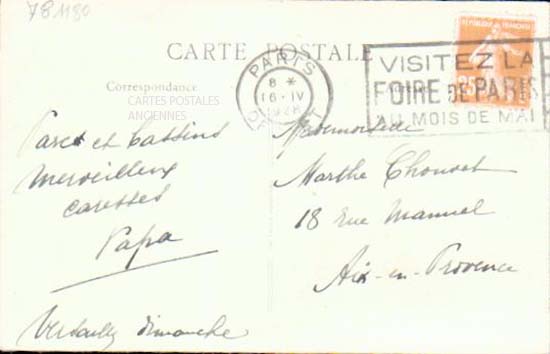 78 1180
CARTE POSTALE
REPUBLIQUE FRANÇAISE
PARIS
8 *
16 · IV
1928
VISITEZ LA
FOIRE DE PARIS
AU MOIS DE MAI
Correspondance
CARTES POSTALES
ANCIENNES
Parc et Bassins
merveilleux
caresses
Papa
Versailles dimanche
Mademoiselle
Marthe Chouvet
18 Rue Manuel
Aix-en-Provence